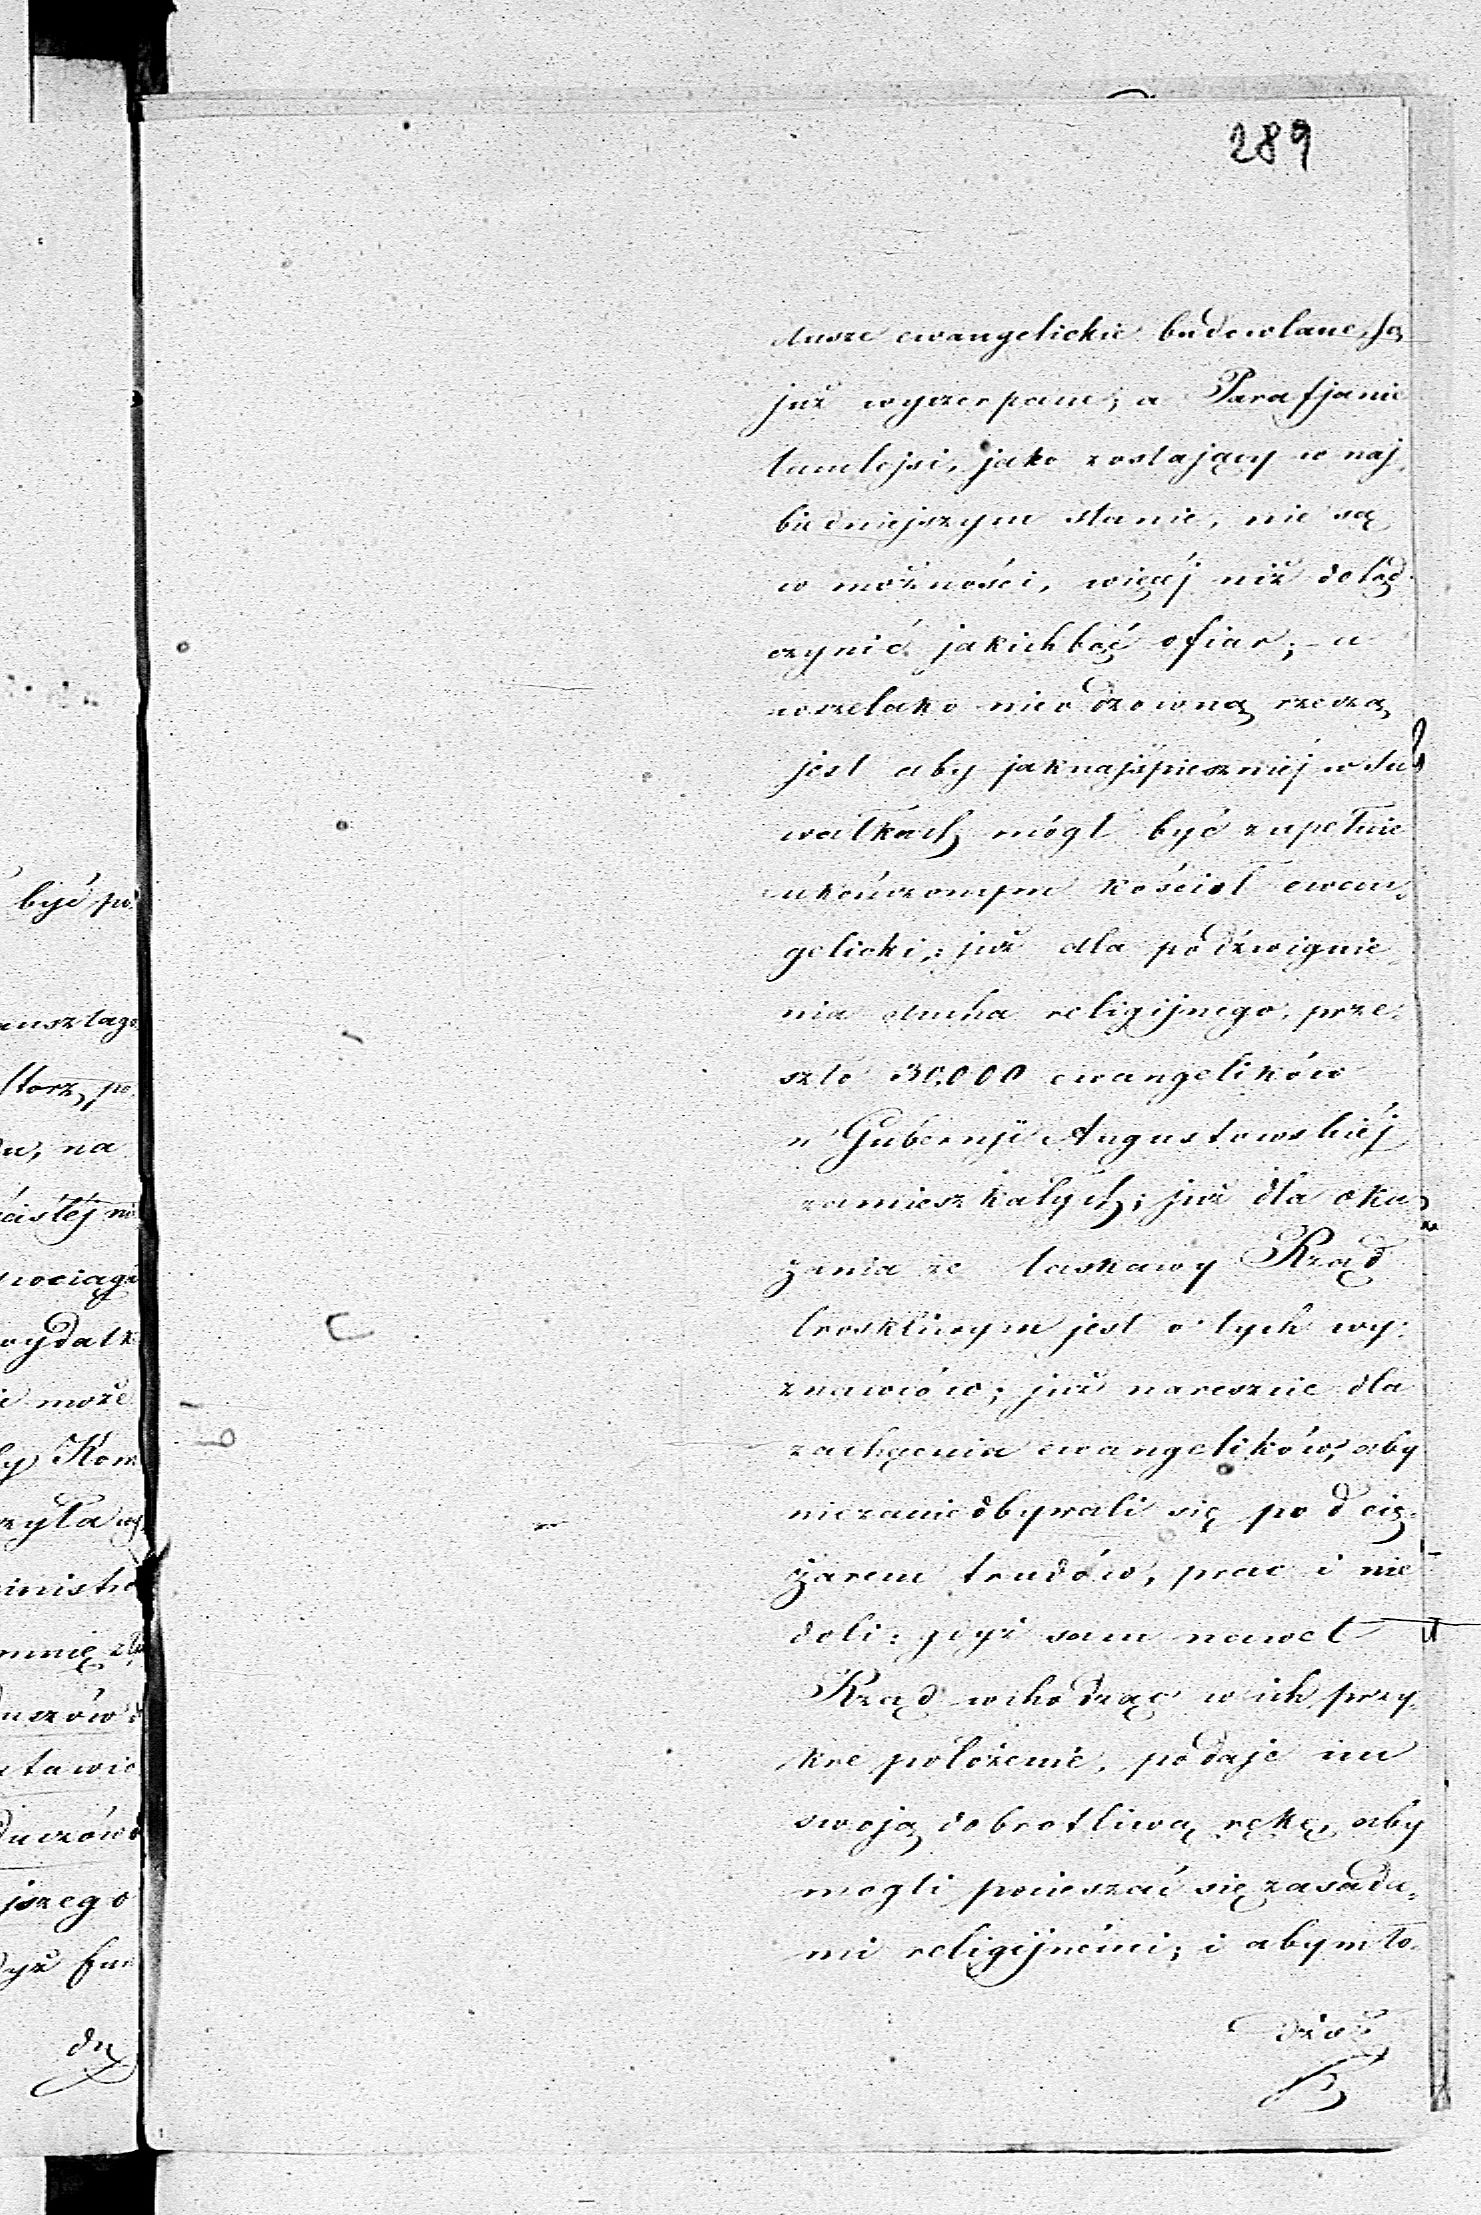 289
dusze ewangelickie budowlane, są
już wyczerpane; a Parafjanie
tamtejsi, jako zostający w naj,
biedniejszym stanie, nie są
w możności, więcéj niż dotąd
czynić jakichbąć ofiar; a
wszelako nieodzowną rzeczą
jest aby jaknajśpieszniéj w Su
wałkach mógł być zupełnie
ukończonym kościoł ewan,
gelicki; już dla podźwignie,
nia ducha religijnego, prze,
szło 30,000 ewangelików
w Gubernji Augustowskiéj
zamieszkałych; już dla oka
zania że łaskawy Rząd
troskliwym jest o tych wy,
znawców; już nareszcie dla
zachęcenia ewangelików, aby
niezaniedbywali się pod cię,
żarem trudów, prac i nie
doli: gdyż sam nawet
Rząd wchodząc w ich przy,
kre położenie, podaje im
swoją dobrotliwą rękę, aby
mogli pocieszać się zasada,
mi religijnémi; i aby mło,
dzież
być po
ści
na
ściśléj
pociąg
wydatk
może
Kom
ministr
duszów
stawie
duszów
jszego
dyż fun
du